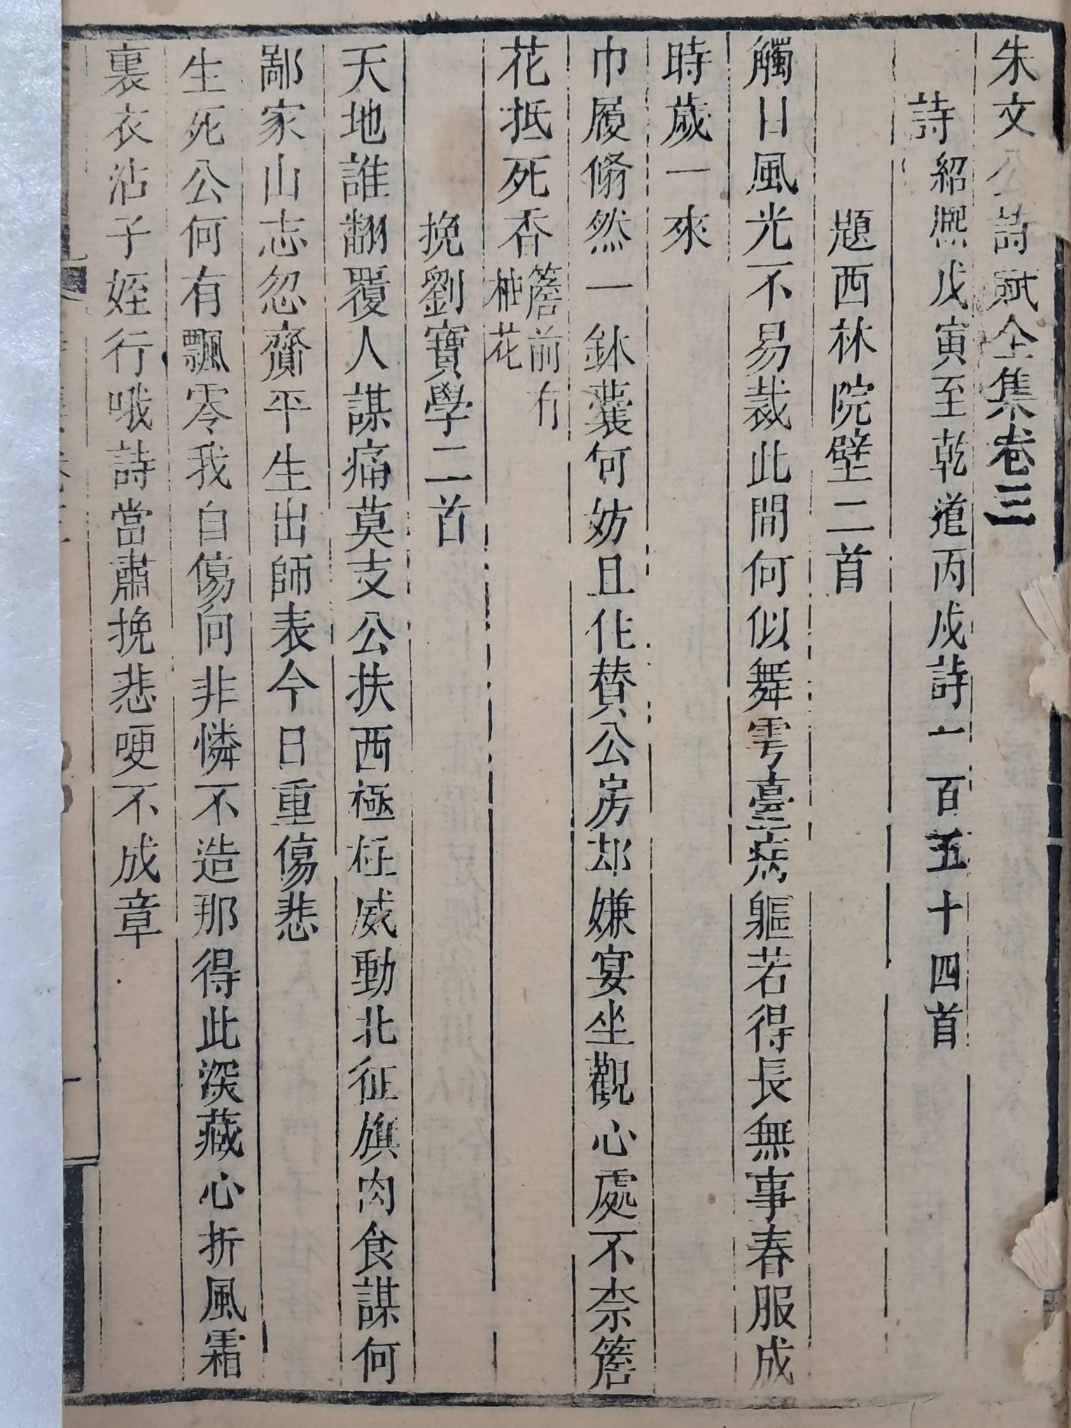 朱文公詩賦全集卷三
詩紹熈戊寅至乾道丙戍詩一百五十四首
題西林院壁二首
觸目風光不易裁此間何似舞雩臺病軀若得長無事春服成
時歲一來
巾履翛然一鉢囊何妨且住賛公房却嫌宴坐觀心處不柰簷
花抵死香簷前有
柚花
挽劉寶學二首
天地誰翻覆人謀痛莫支公扶西極柱威動北征旗肉食謀何
鄙家山志忽齎平生出師表今日重傷悲
生死公何有飄零我自傷向非憐不造那得此深藏心折風霜
裏衣沾子姪行哦詩當肅挽悲哽不成章